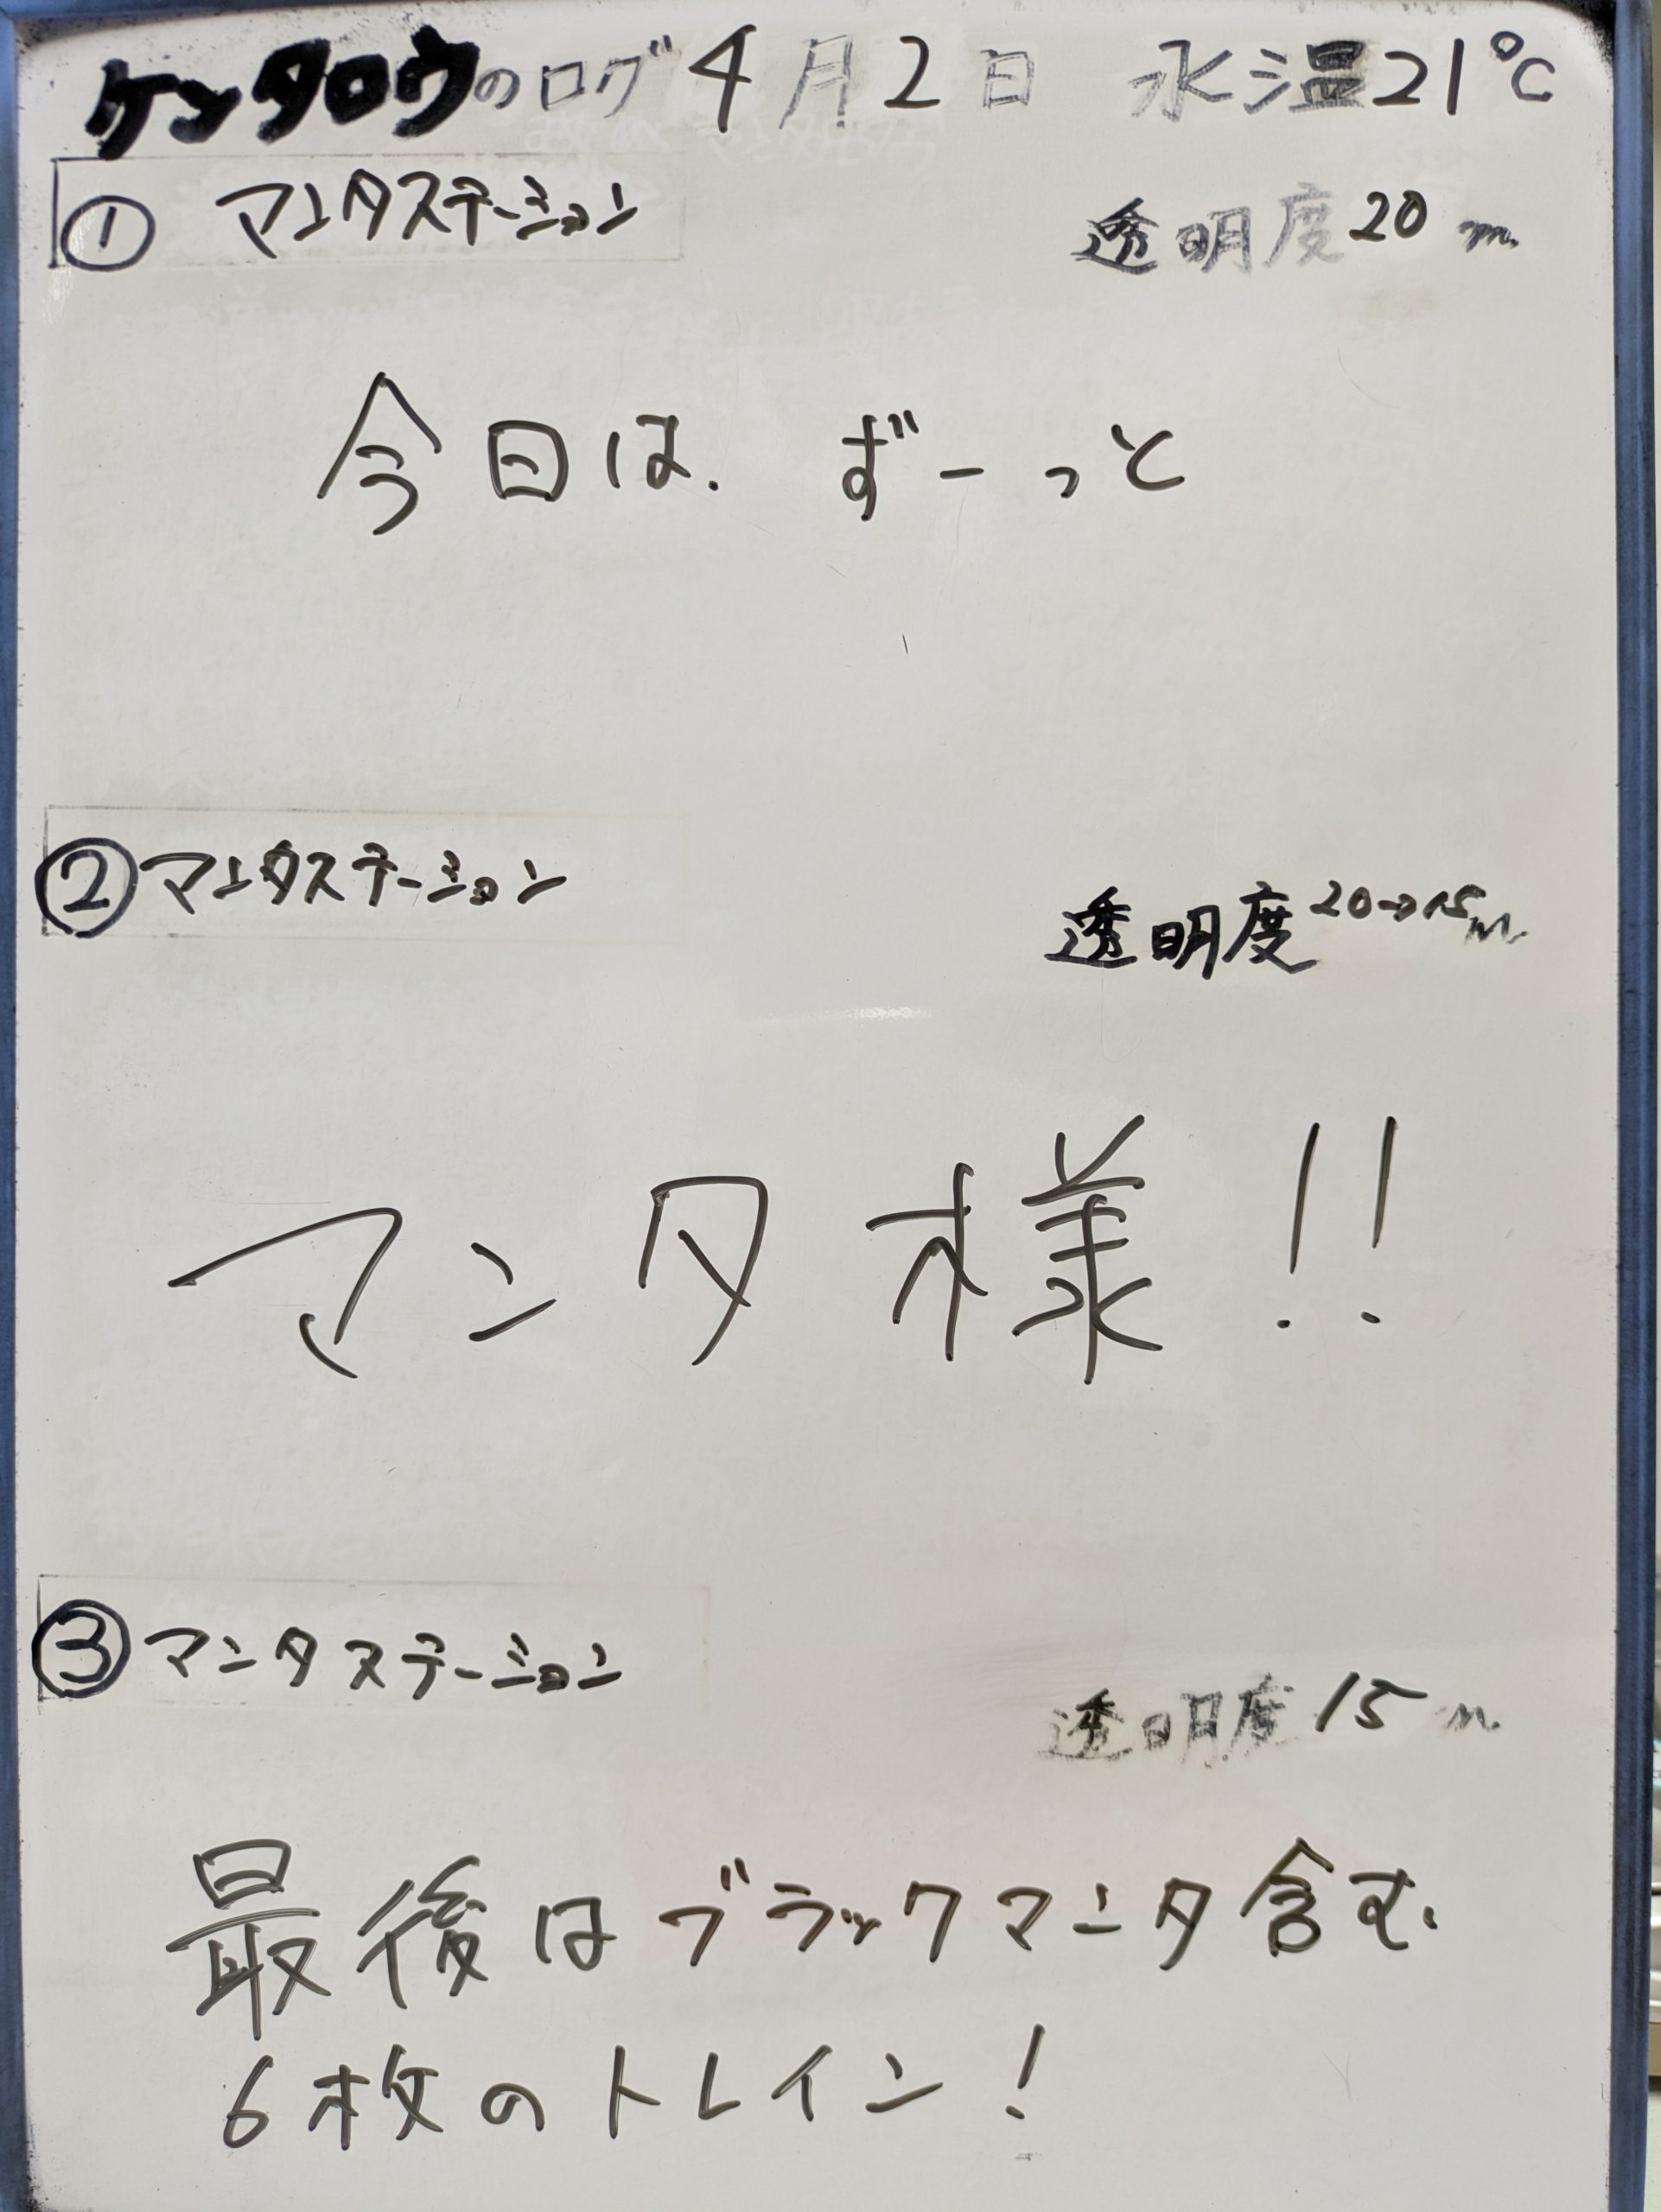 ケンタロウのログ 4月2日 水温21℃
① マンタステーション
透明度20m
今日は. ずーっと
② マンタステーション
透明度20→15m
マンタ様!!
③ マンタステーション
透明度15m
最後はブラックマンタ含む
6枚のトレイン!